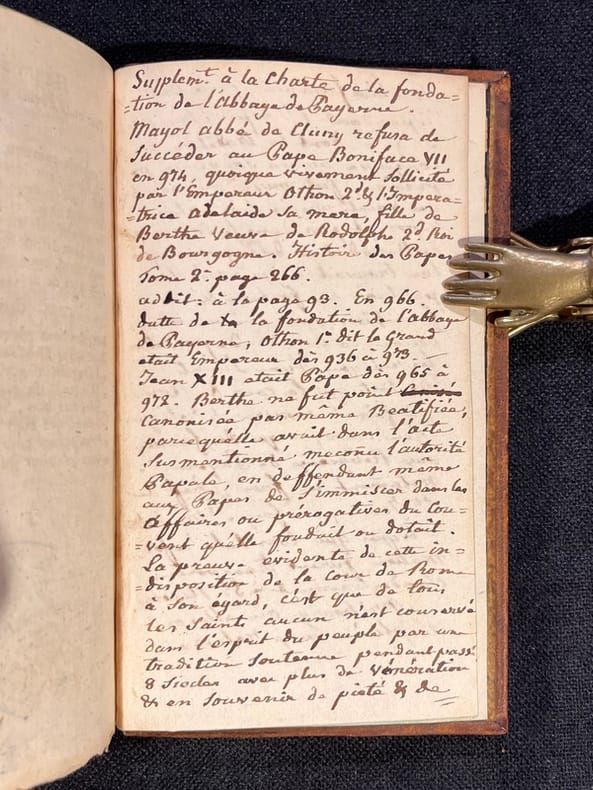 Supplem.t à la Charte de la fonda=
=tion de l'abbaye de Payerne.
Mayol abbé de Cluny refusa de
succéder au Pape Boniface VII
en 974, quoique vivement sollicité
par l'Empereur Othon 2.d & l'Impera=
=trice adelaide sa mere, fille de
Berthe veuve de Rodolph 2.d Roi
de Bourgogne. Histoire des Papes
Tome 2.e page 266.
addit: à la page 93. En 966.
datte de la fondation de l'abbaye
de Payerne, Othon 1.er dit le Grand
etait Empereur dès 936 à 973.
Jean XIII etait Pape dès 965 à
972. Berthe ne fut point
canonisée pas même Beatifiée,
parcequ'elle avait dans l'acte
susmentionné, meconu l'autorité
Papale, en deffendant même
aux Papes de s'immiscer dans les
affaires ou prérogatives du Cou=
=vent qu'elle fondait ou dotait.
La preuve evidente de cette in=
=disposition de la cour de Rome
à son égard, c'est que de tous
les saints aucun n'est conservé
dans l'esprit du peuple par une
tradition soutenue pendant passé
8 siecles avec plus de vénération
& en souvenir de pieté & de